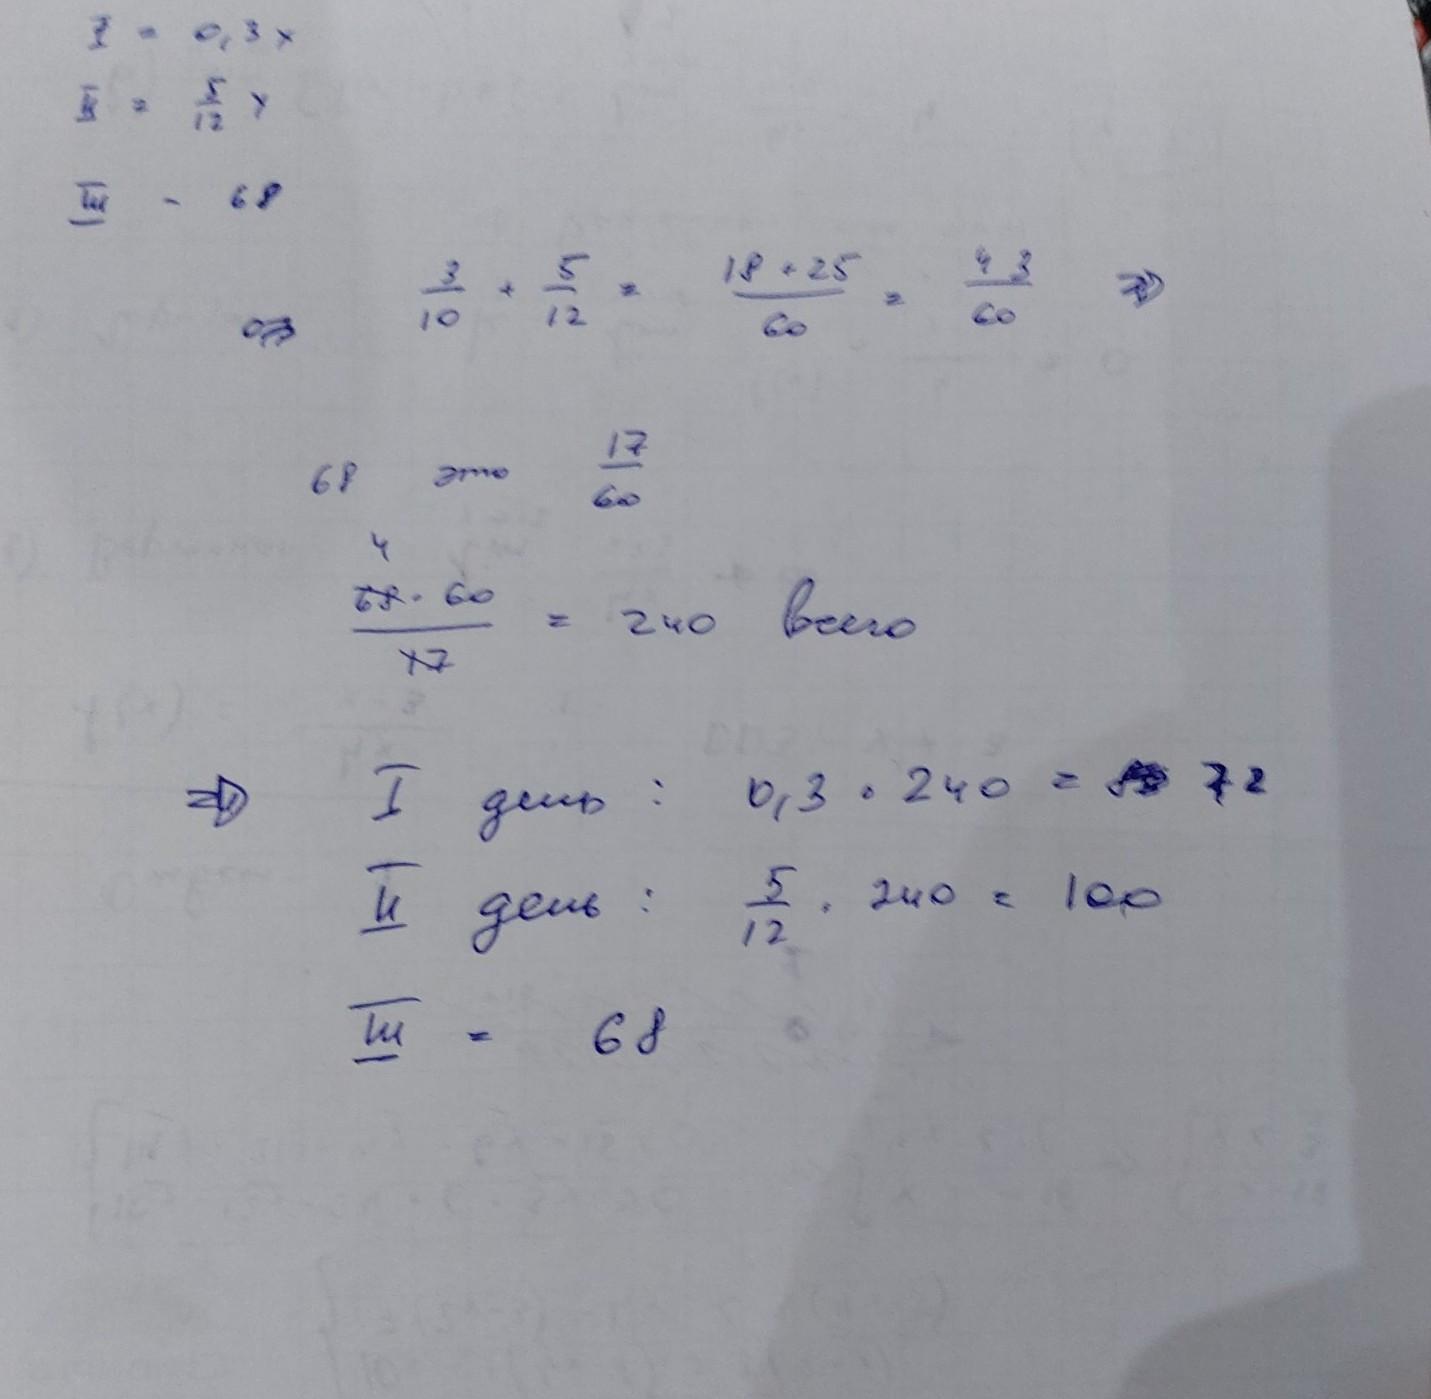 I = 0,3x
II = 5/12 x
III - 68
=> 3/10 + 5/12 = 18+25/60 = 43/60 =>
68 это 17/60
4
68·60/17 = 240 всего
=> I день : 0,3 · 240 = 72
II день : 5/12 · 240 = 100
III = 68